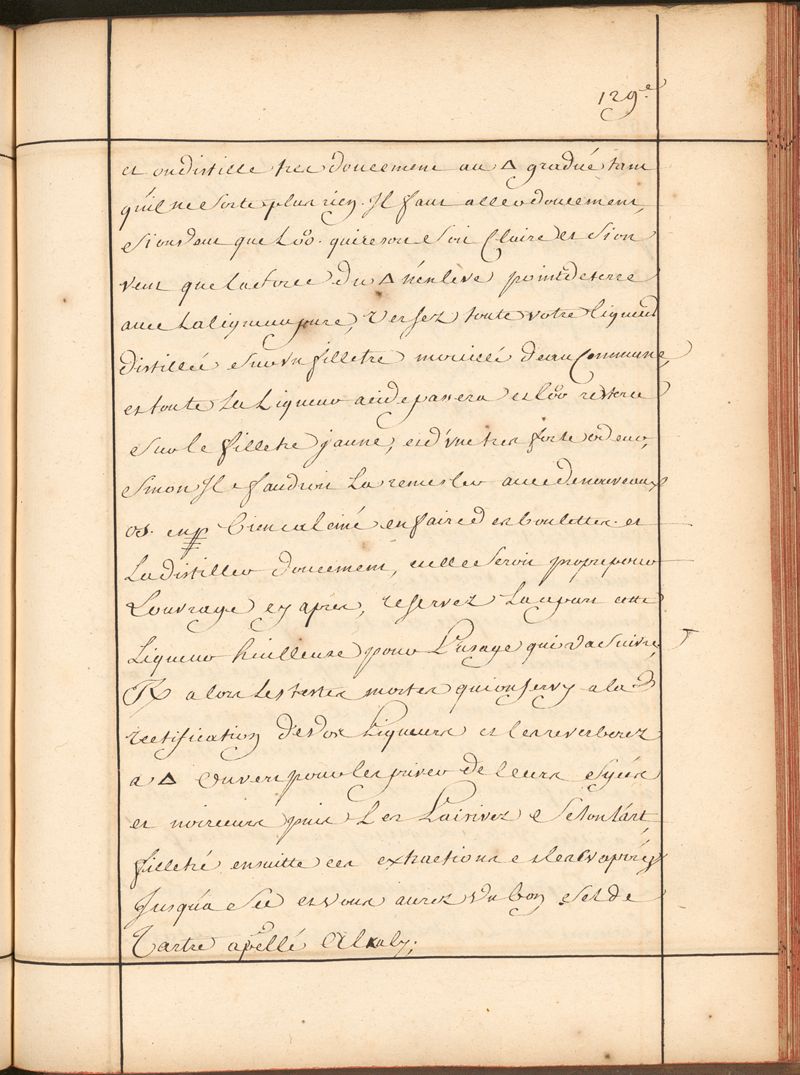 129.e
et on distille tres doucement au △ gradué tant
qu'il ne sorte plus rien. Il faut aller doucement,
si on veut que L'oo. qui en sort soit Claire et si on
veut que la force du △ n'enleve point de terre
avec La liqueur jaune, Versez toute votre liqueur
distillée sur un filletre mouillé d'eau Commune,
et toute La Liqueur acide passera et L'oo restera
sur le filletre jaune, et d'une tres forte odeur,
sinon Il faudroit La remesler avec de nouveaux
os. en bien calciné en faire des boulettes. et
La distiller doucement, et elle seroit propre pour
L'ouvrage cy apres, reservez La apart cette
Liqueur huilleuse pour L'usage qui va suivre,
℞ alors Les testes mortes qui ont servy a la
rectification de vos Liqueurs et les reverberez
a △ ouvert pour les priver de leurs
et noirceurs puis Les Laisivez selon l'art,
filletré ensuitte ces extractions et les Evaporez
Jusqu'a sec et vous aurez un bon sel de
Tartre apellé Alkaly;